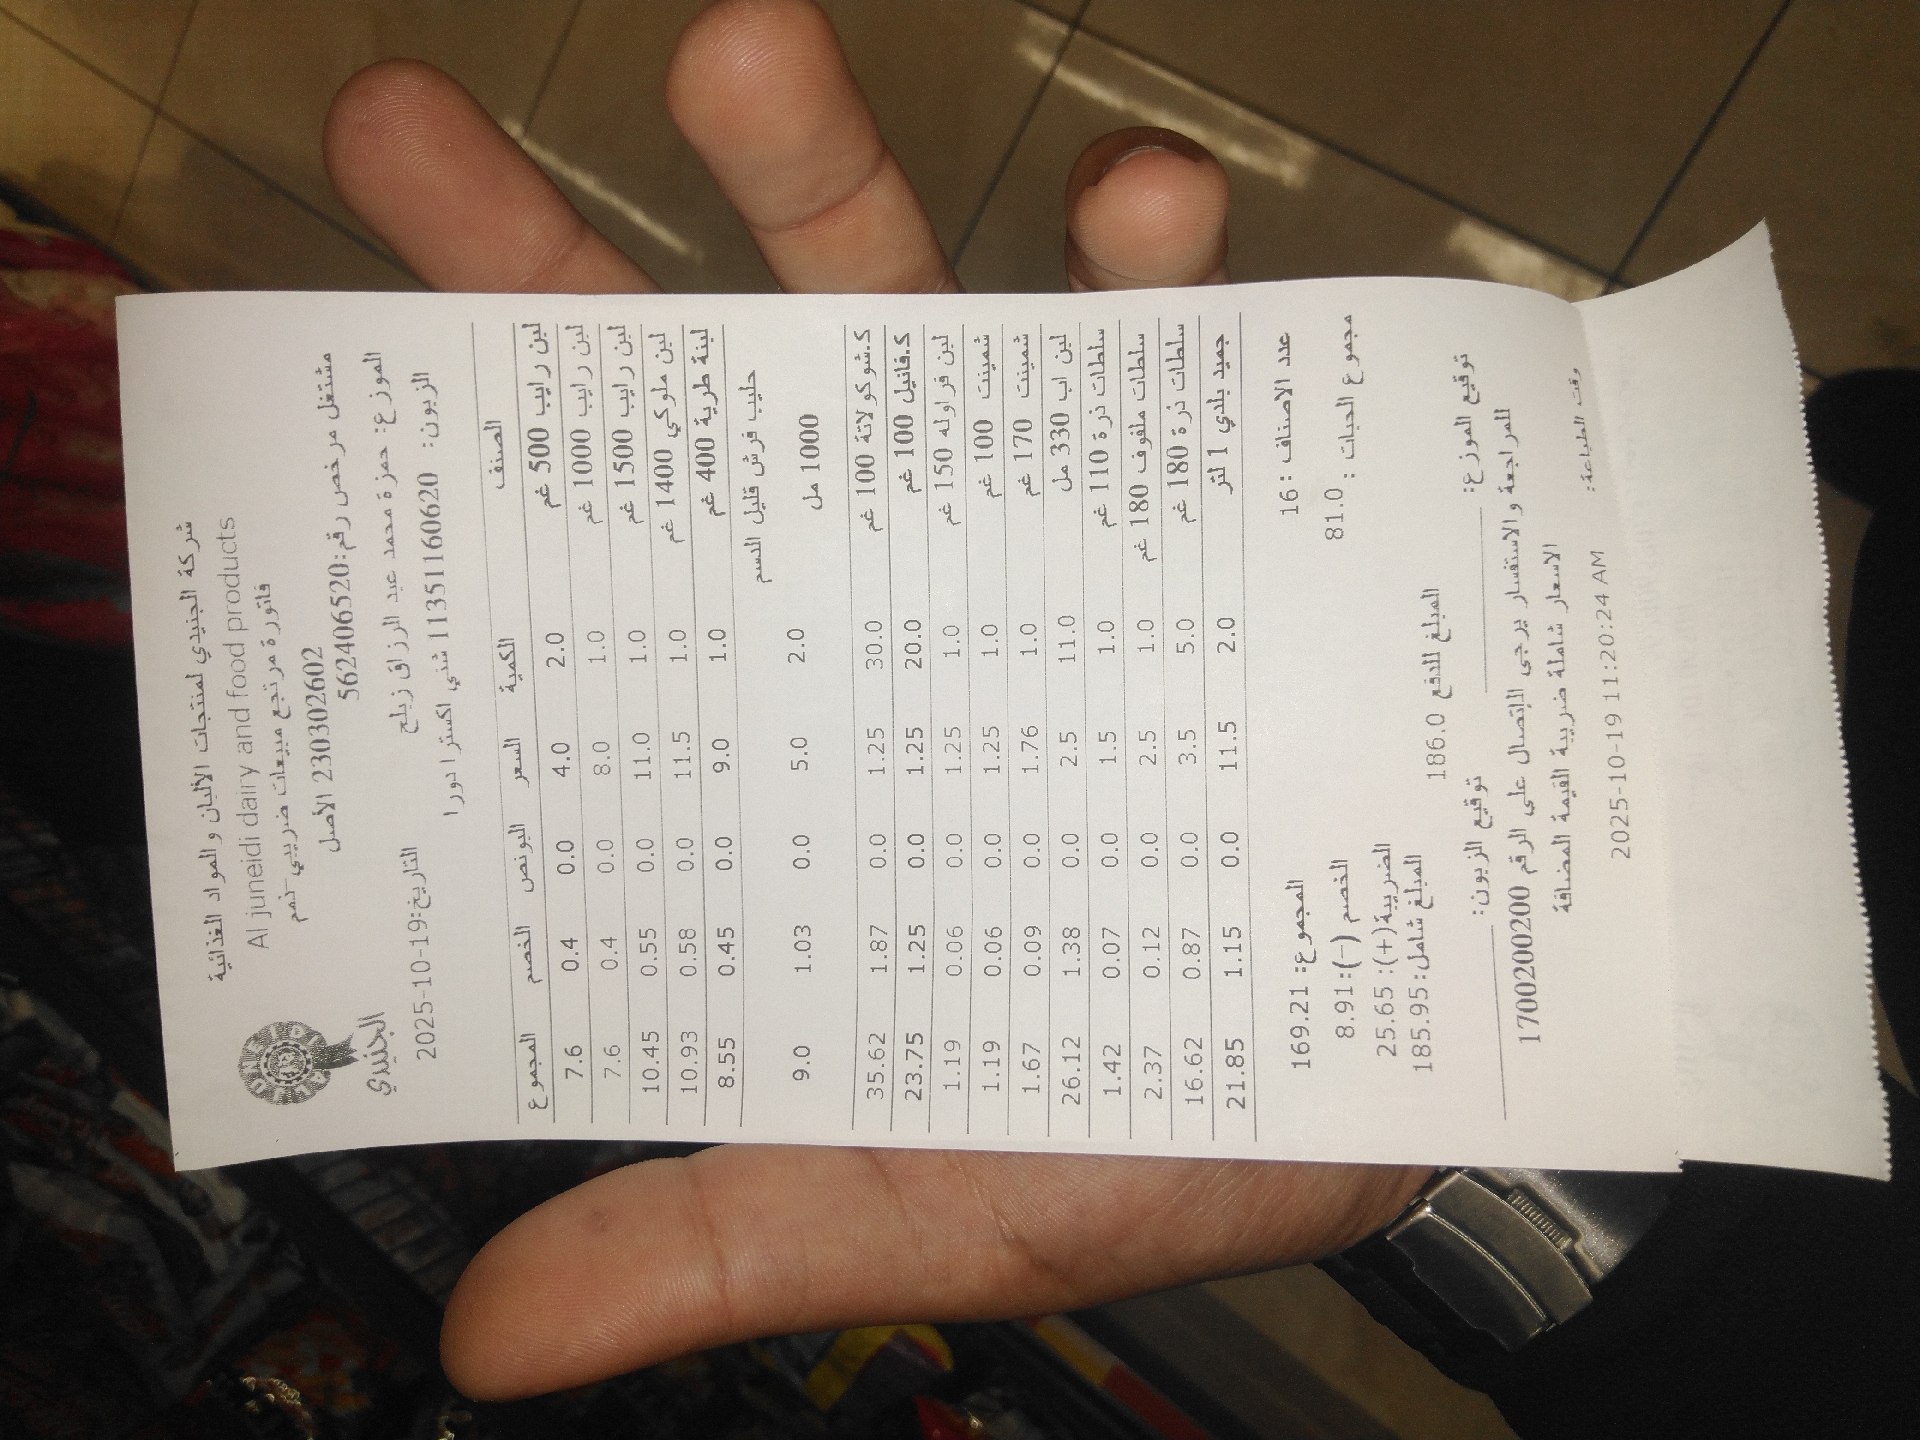 شركة الجنيدي لمنتجات الألبان والمواد الغذائية
Al juneidi dairy and food products
فاتورة مرتجع مبيعات ضريبي-ذمم
230302602 الأصل
مشتغل مرخص رقم:562406520
الجنيدي
الموزع: حمزة محمد عبد الرزاق زبلح
التاريخ:2025-10-19
الزبون: 1135116062‎0 شني اكسترا دورا
الصنف الكمية السعر البونص الخصم المجموع
لبن رايب 500 غم 2.0 4.0 0.0 0.4 7.6
لبن رايب 1000 غم 1.0 8.0 0.0 0.4 7.6
لبن رايب 1500 غم 1.0 11.0 0.0 0.55 10.45
لبن ملوكي 1400 غم 1.0 11.5 0.0 0.58 10.93
لبنة طرية 400 غم 1.0 9.0 0.0 0.45 8.55
حليب فرش قليل الدسم
1000 مل 2.0 5.0 0.0 1.03 9.0
ك.شوكولاتة 100 غم 30.0 1.25 0.0 1.87 35.62
ك.فانيل 100 غم 20.0 1.25 0.0 1.25 23.75
لبن فراوله 150 غم 1.0 1.25 0.0 0.06 1.19
شمينت 100 غم 1.0 1.25 0.0 0.06 1.19
شمينت 170 غم 1.0 1.76 0.0 0.09 1.67
لبن اب 330 مل 11.0 2.5 0.0 1.38 26.12
سلطات ذرة 110 غم 1.0 1.5 0.0 0.07 1.42
سلطات ملفوف 180 غم 1.0 2.5 0.0 0.12 2.37
سلطات ذرة 180 غم 5.0 3.5 0.0 0.87 16.62
جميد بلدي 1 لتر 2.0 11.5 0.0 1.15 21.85
عدد الاصناف : 16 المجموع: 169.21
مجموع الحبات : 81.0 الخصم (-):8.91
الضريبة(+): 25.65
المبلغ شامل:185.95
المبلغ للدفع 186.0
توقيع الموزع: توقيع الزبون:
للمراجعة والاستفسار يرجى الإتصال على الرقم 1700200200
الاسعار شاملة ضريبة القيمة المضافة
وقت الطباعة:
2025-10-19 11:20:24 AM